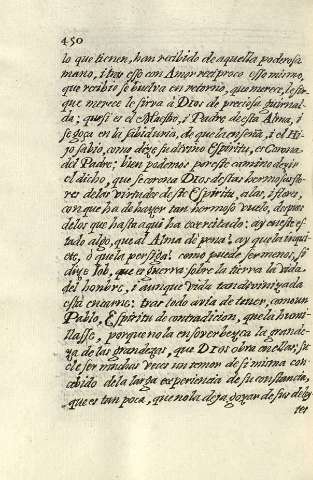 450
lo que tienen, han recibido de aquella poderosa
mano, i tras esso con Amor reciproco esso mismo,
que recibiò se buelva en retorno, que merece, lo
que merece le sirva à DIOS de preciosa guirnal-
da; que si es el Maestro, i Padre desta Alma, i
se goça en la sabiduria, de que la enseña, i el Hi-
jo sabio, como dize su divino Espiritu, es Corona
del Padre; bien podemos por este camino dezir
el dicho, que se corona DIOS destas hermosas flo-
res de las virtudes deste Espiritu, alas, i flores,
con que ha de hazer tan hermoso vuelo, despues
de los que hasta aqui ha exercitado; ay en este es-
tado algo, que al Alma de pena? ay que la inqui-
ete, ò que la persiga? como puede ser menos, si
dize Iob, que es guerra sobre la tierra la vida
del hombre, i aunque vida tan divinizada
està en carne; tras todo avia de tener, como un
Pablo, Espiritu de contradicion, que la humi-
llasse, porque no la ensoverbezca la grande-
za de las grandezas, que DIOS obra en ellas; su-
ele ser muchas vezes un temor de si misma con-
cebido de la larga experiencia de su constancia,
que es tan poca, que no la deja gozar de sus deley-
tes